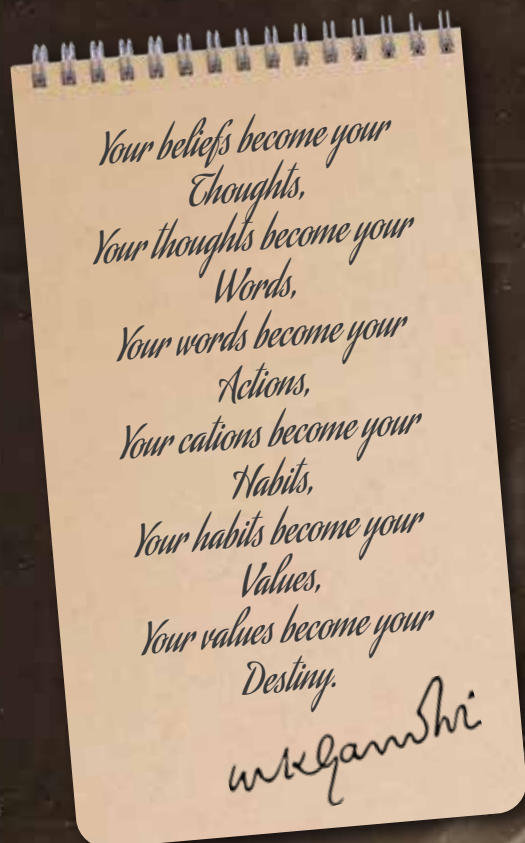 Your beliefs become your
Thoughts,
Your thoughts become your
Words,
Your words become your
Actions,
Your cations become your
Habits,
Your habits become your
Values,
Your values become your
Destiny.
mkgandhi